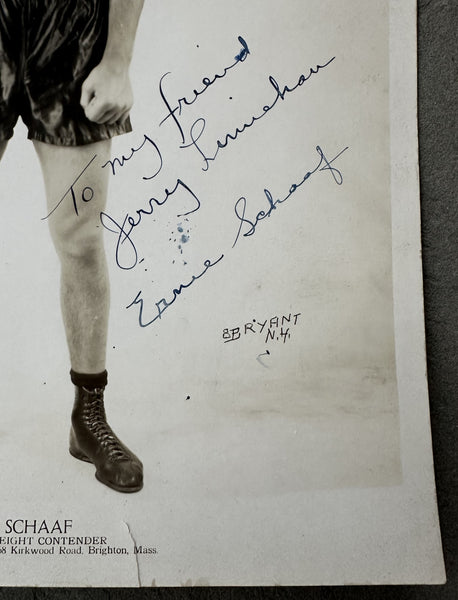 To my friend
Jerry Linnehan
Ernie Schaaf
BRYANT
N.H.
SCHAAF
EIGHT CONTENDER
68 Kirkwood Road, Brighton, Mass.